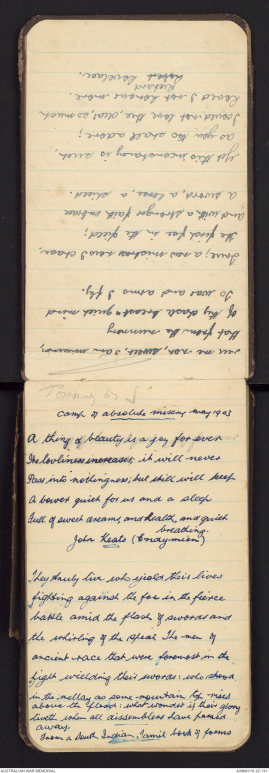 Tell me not, Sweet, I am unkind,
that from the nunnery
Of thy chaste breast & quiet mind
To war and arms I fly.
True; a new mistress now I chase,
the first foe in the field;
and with a stronger faith embrace
a sword, a horse, a shield.
Yet this inconstancy is such,
as you too shall adore;
I could not love thee, dear, so much,
Loved I not honour more.
Richard
Lovelace.
camp of absolute misery may 1943
A thing of beauty is a joy for ever
Its loveliness increases, it will never
Pass into nothingness; but still will keep
A bower quiet for us and a sleep
Full of sweet dreams, and health, and quiet
breathing.
John Keats (Endymion)
They truly live who yield their lives
fighting against the foe in the fierce
battle amid the flash of swords and
the whirling of the spear. The men of
ancient race that were foremost in the
fight wielding their swords: who stood
in the mellay as some mountain rises
above the flood: what wonder is their glory
liveth when all dissemblers have passed
away.
From a South Indian, Tamil book of poems
AUSTRALIAN WAR MEMORIAL